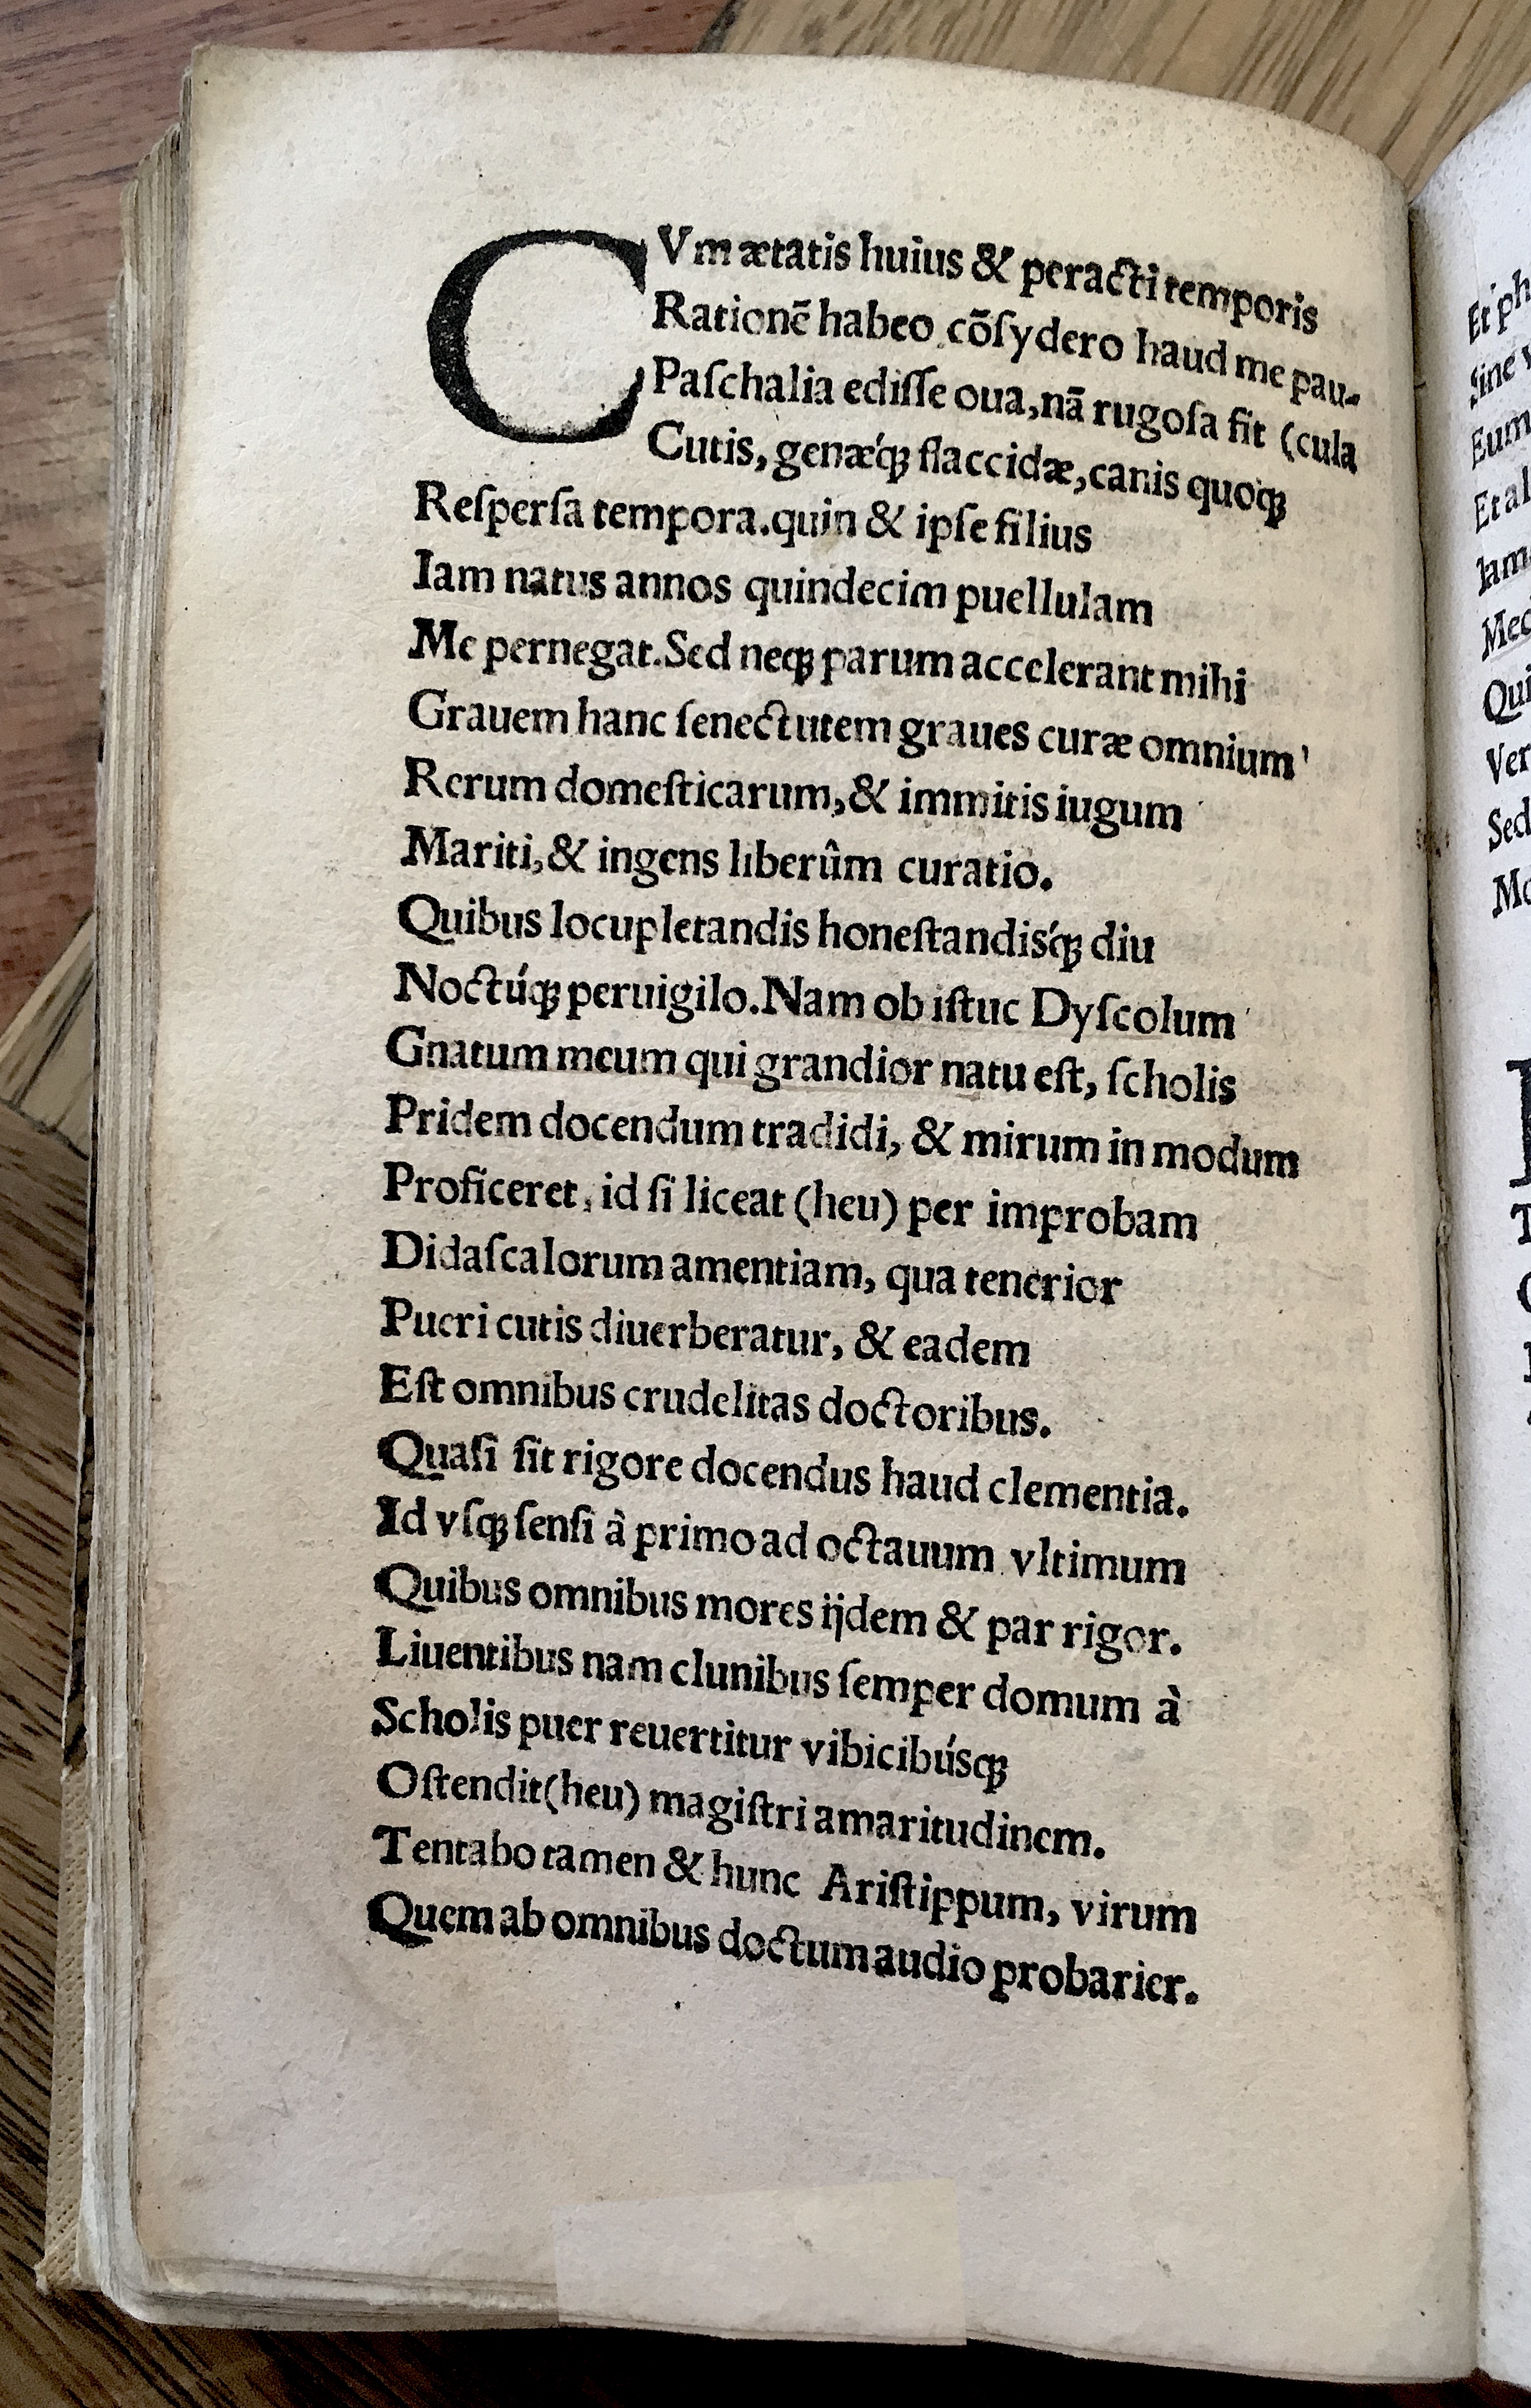 CVm ætatis huius & peracti temporis
Rationē habeo cōſydero haud me pau-
Paſchalia ediſſe oua,nā rugoſa fit (cula
Cutis, genæq́ꝫ flaccidæ,canis quoqꝫ
Reſperſa tempora.quin & ipſe filius
Iam natus annos quindecim puellulam
Me pernegat.Sed neqꝫ parum accelerant mihi
Grauem hanc ſenectutem graues curæ omnium
Rerum domeſticarum,& immitis iugum
Mariti,& ingens liberûm curatio.
Quibus locupletandis honeſtandisq́ꝫ diu
Noctúqꝫ peruigilo.Nam ob iſtuc Dyſcolum
Gnatum meum qui grandior natu eſt, ſcholis
Pridem docendum tradidi, & mirum in modum
Proficeret, id ſi liceat (heu) per improbam
Didaſcalorum amentiam, qua tenerior
Pueri cutis diuerberatur, & eadem
Eſt omnibus crudelitas doctoribus.
Quaſi ſit rigore docendus haud clementia.
Id vſqꝫ ſenſi à primo ad octauum vltimum
Quibus omnibus mores ijdem & par rigor.
Liuentibus nam clunibus ſemper domum à
Scholis puer reuertitur vibicibúsqꝫ
Oſtendit(heu) magiſtri amaritudinem.
Tentabo tamen & hunc Ariſtippum, virum
Quem ab omnibus doctum audio probarier.
Et ph
Sine v
Eum
Et al
Iam
Med
Qui
Ver
Sed
Mo